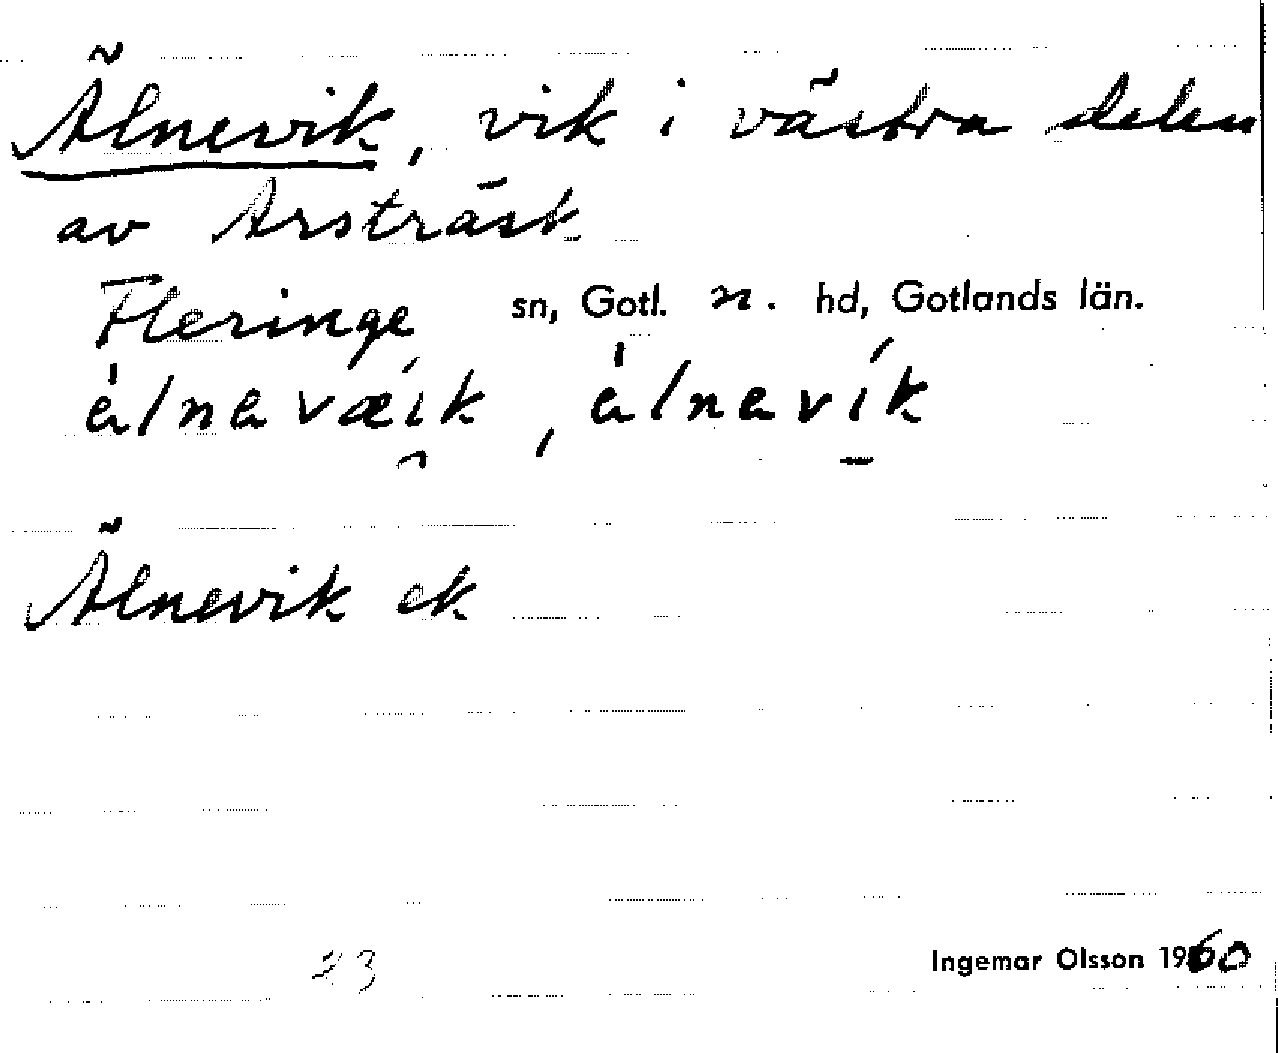 Älnevik, vik i västra delen
av Arsträsk
Fleringe sn, Gotl. n. hd, Gotlands län.
Älnevik ek
23
Ingemar Olsson 1960